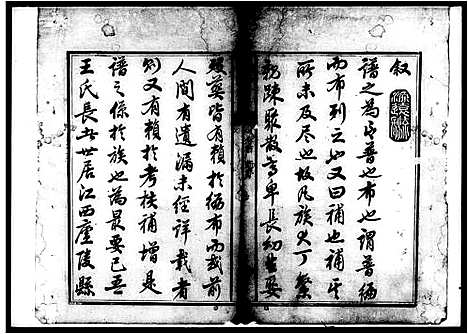 叙
譜之為言普也布也謂普徧
而布列之也又曰補也補其
所未及尽也故凡族大丁繁
親疎聚散尊卑長幼生娶
殁葬皆有賴於徧布而或前
人間有遺漏未經詳載者
则又有賴於考核補增是
譜之係於族也為最要已吾
王氏長房世居江西廬陵縣